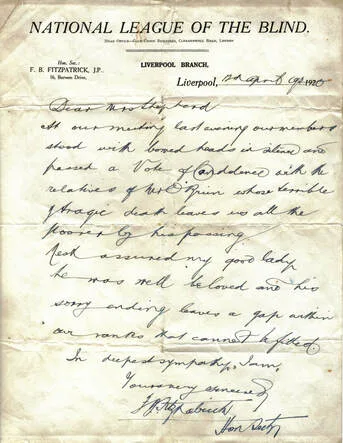 NATIONAL LEAGUE OF THE BLIND.
HEAD OFFICE—CLUB UNION BUILDINGS, CLERKENWELL ROAD, LONDON
Hon. Sec.:
F. B. FITZPATRICK, J.P.,
LIVERPOOL BRANCH.
Liverpool, April 192
Dear Mrs Shephard
At our meeting last evening our members
stood with bowed heads in silence and
passed a Vote of Condolence with the
relatives of Mr O'Brien whose terrible
& tragic death leaves us all the
poorer by his passing.
Rest assured my good lady
he was well beloved and his
sorry ending leaves a gap within
our ranks that cannot be filled
In deepest sympathy, I am,
Yours very sincerely
F B Fitzpatrick
Hon Secty